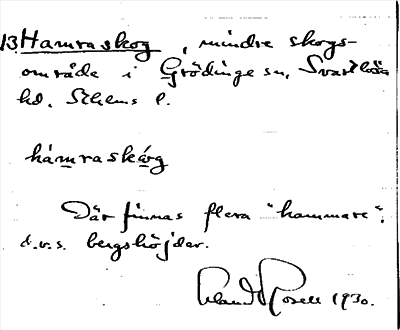 13 Hamraskog, mindre skogs-
område i Grödinge sn, Svartlösa
hd. Sthlms l.
hámraskóg
Där finnas flera "hammare".
d.v.s. bergshöjder.
Rosell 1930.